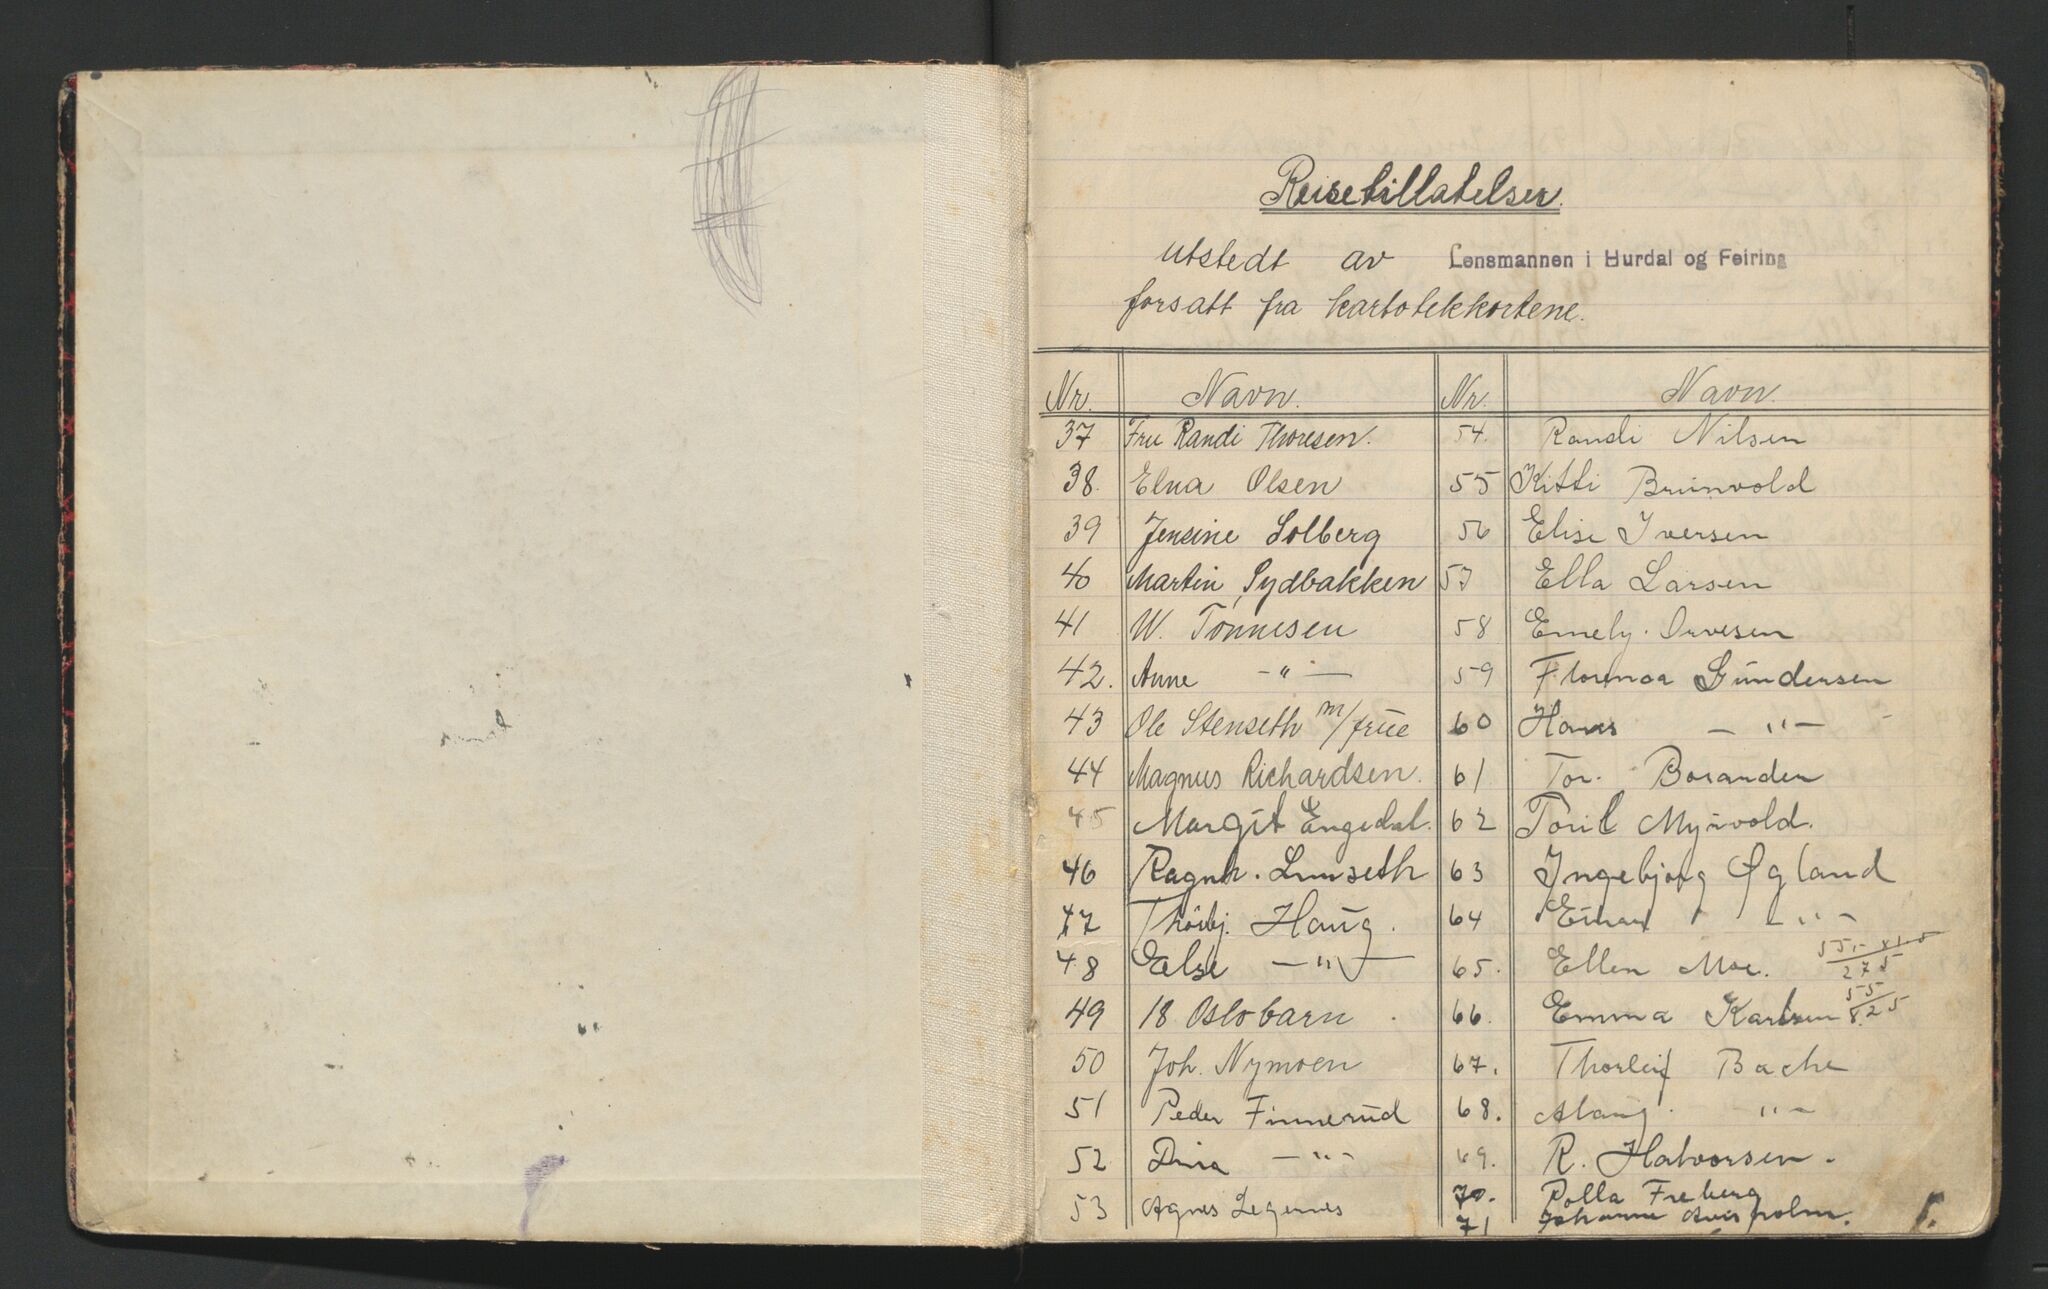 Reisetillatelser.
utstedt av Lensmannen i Hurdal og Feiring
forsatt fra kartotekkortene.
Nr. Navn. Nr. Navn
37 Fru Randi Thoresen. 54. Randi Nilsen
38. Elna Olsen 55 Kitti Brunvold
39 Jensine Solberg 56 Elise Iversen
40 Martin Sydbakken 57 Ella Larsen
41 W. Tønnesen 58 Emely Orvesen
42. Anne -"- 59 Gundersen
43 Ole Stenseth m/frue 60 Hans - "-
44 Magnus Richardsen. 61 Tor. Boranden
45 Margit Engedal. 62 Toril Myrvold.
46 Ragnh. Lunseth 63 Ingebjørg Øgland
47 Thorbj. Haug. 64 Einar - "-
48 Else - "- 65. Ellen Moe.
275
49 18 Oslobarn. 66. Emma Karlsen 55
8.25
50 Joh. Nymoen 67. Thorleif Bache
51 Peder Finnerud 68. Aslaug. "-
52 Dina - "- 69. R. Halvorsen.
53 Agnes Legernes 70. Polla Freberg
71 Johanne
1.